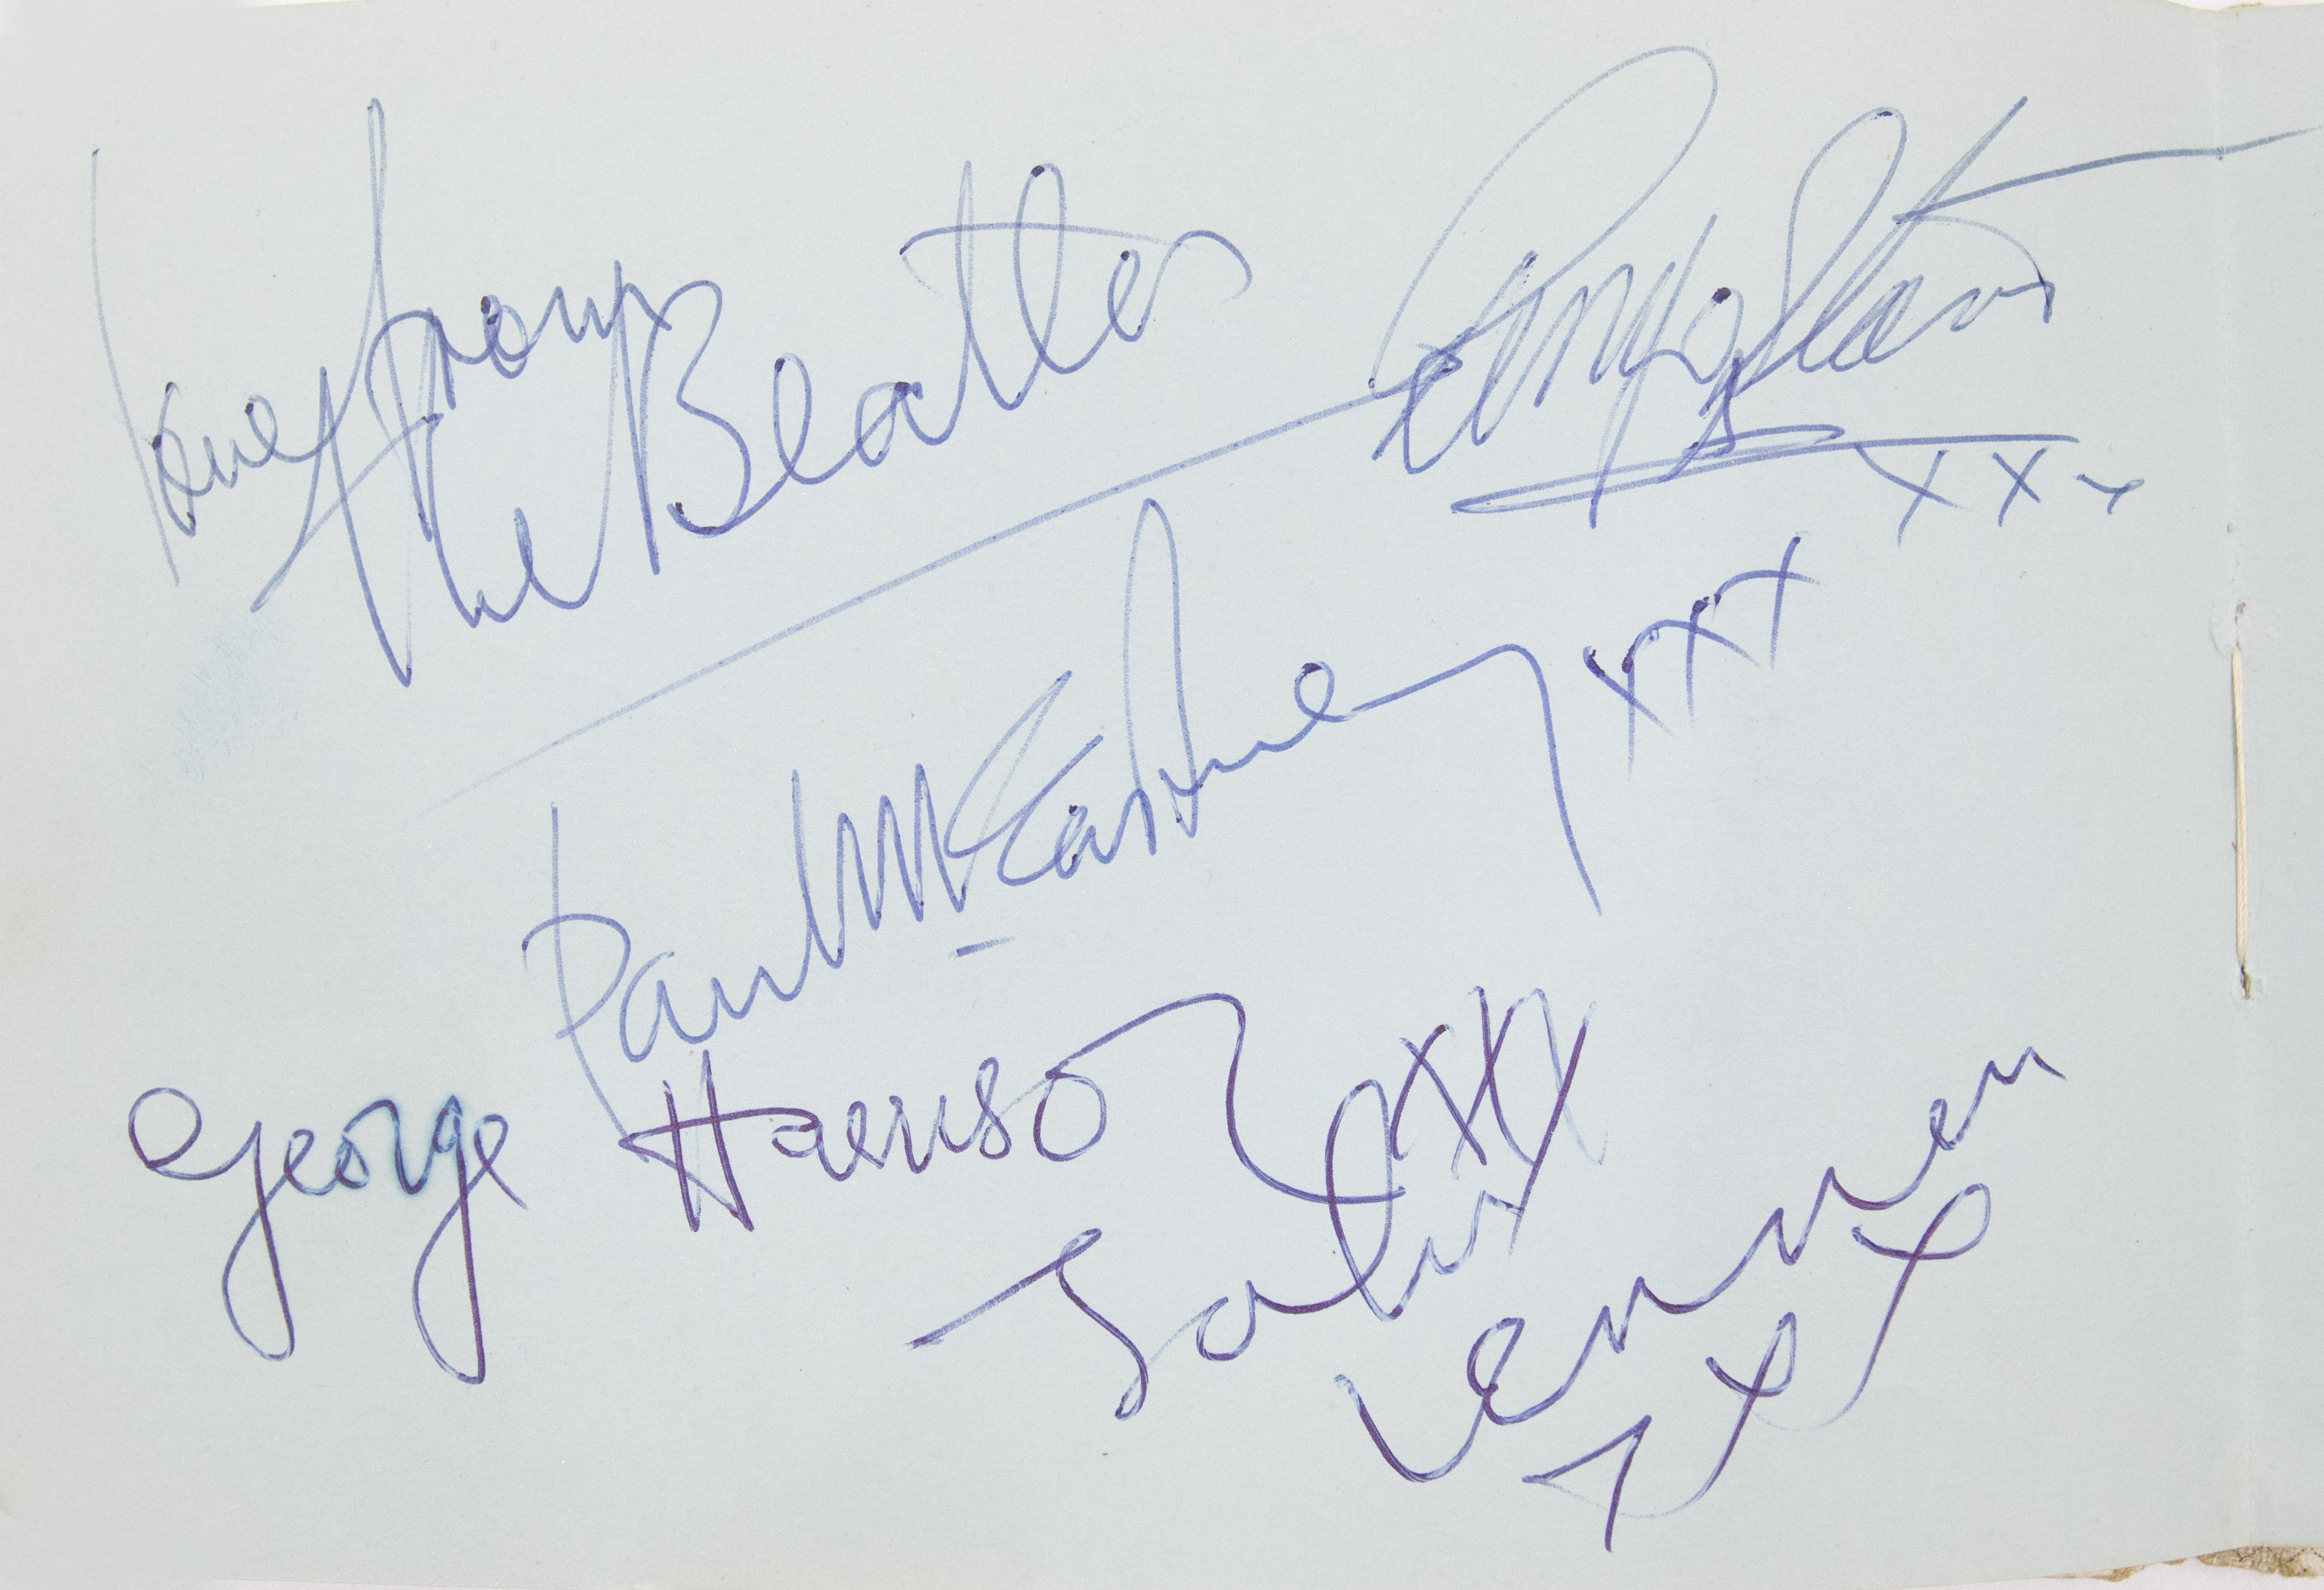 love from
the Beatles
Ringo Starr
xxx
Paul McCartney xxx
George Harrison xxx
John
Lennon
xxx